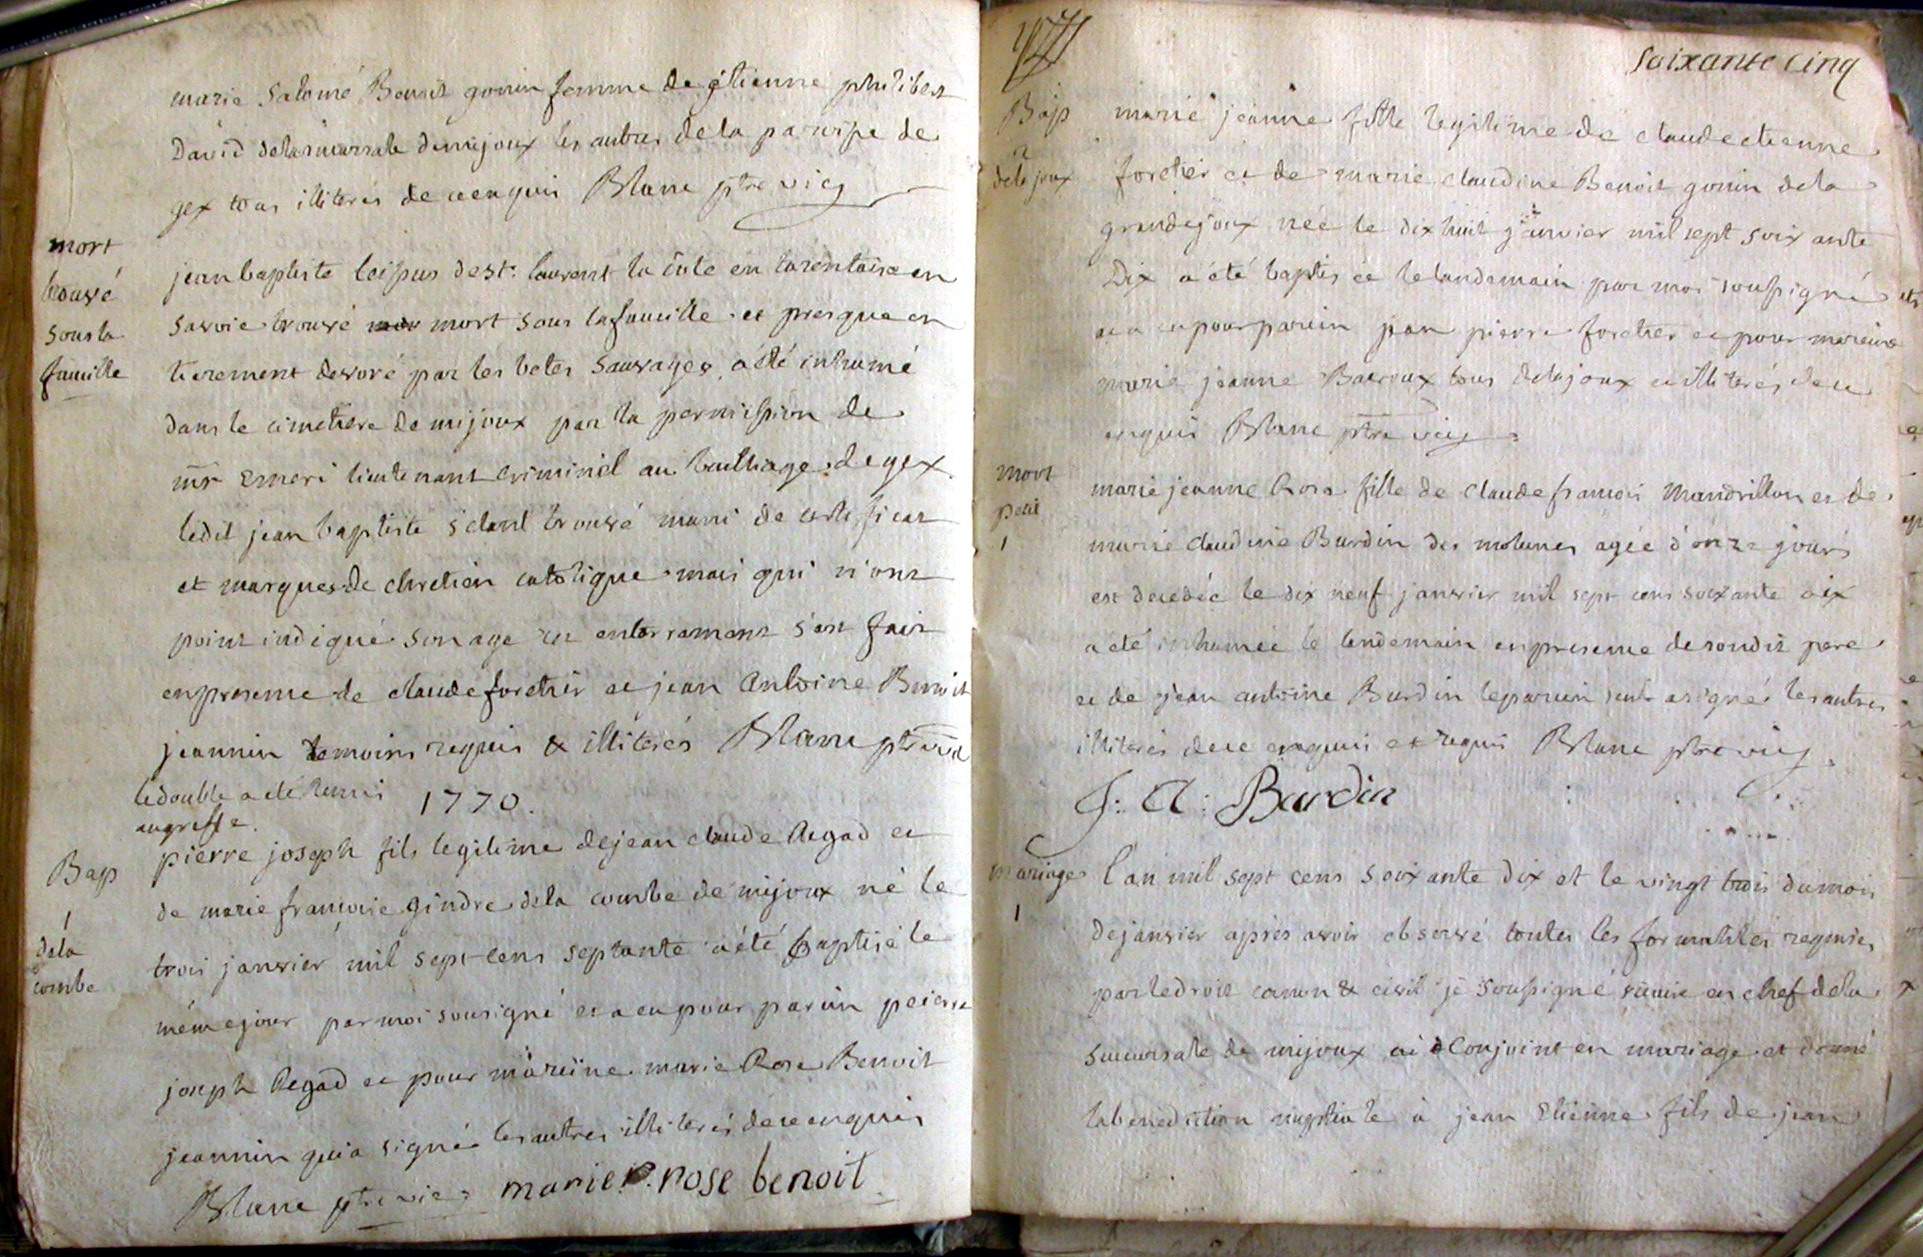 marie Salomé Benoit gonin femme de étienne philibert
David dela sucursale de mijoux les autres dela paroisse de
gex tous illiterés de ce enquis Blanc ptre vic
mort
trouvé
sous la
faucille
jean baptiste de st: laurent la cote en tarentaise en
savoie trouvé mort sous la faucille et presque en
tierement devoré par les betes sauvages a été inhumé
dans le cimetiere de mijoux par la permission de
mr Emeri lieutenant criminel au bailliage de gex
ledit jean baptiste s'etant trouvé muni de certificat
et marques de chretien catolique mais qui n'ont
point indiqué son age cet enterrement s'est fait
en presence de claude foretier et jean Antoine Benoit
jeannin temoins requis & illiterés Blanc ptre vic
le double a été remis
au greffe.
1770.
Bap
1
dela
combe
pierre joseph fils legitime de jean claude Regad et
de marie francoise gindre dela combe de mijoux né le
trois janvier mil sept cens septante a été baptisé le
même jour par moi sousigné et a eu pour parain pierre
joseph Regad et pour maraine marie Rose Benoit
jeannin qui a signée les autres illiterés de ce enquis
Blanc ptre vic marie rose benoit
1771
soixante cinq
Bap
2
dela joux
marie jeanne fille legitime de claude etienne
foretier et de marie claudine Benoit gonin dela
grande joux née le dix huit janvier mil sept soix ante
Dix a été baptisée le landemain par moi soussigné
et a eu pour parain jean pierre foretier et pour maraine
marie jeanne tous dela joux et illiterés de ce
enquis Blanc ptre vic
mort
petit
1
marie jeanne Rosa fille de claude francois Mandrillon et de
marie claudine Burdin des molunes agée d'onze jours
est decedée le dix neuf janvier mil sept cens soixante dix
a été inhumée le lendemain en presence de sondit pere
et de jean antoine Burdin le parain seul a signé les autres
illiterés de ce enquis et requis Blanc ptre vic
J: A: Burdin
mariage
1
l'an mil sept cens soixante dix et le vingt trois du mois
de janvier après avoir observé toutes les formalités requises
par le droit canon & civil je soussigné vicaire en chef dela
succursale de mijoux ai Conjoint en mariage et donné
la benediction nuptiale à jean Etienne fils de jean